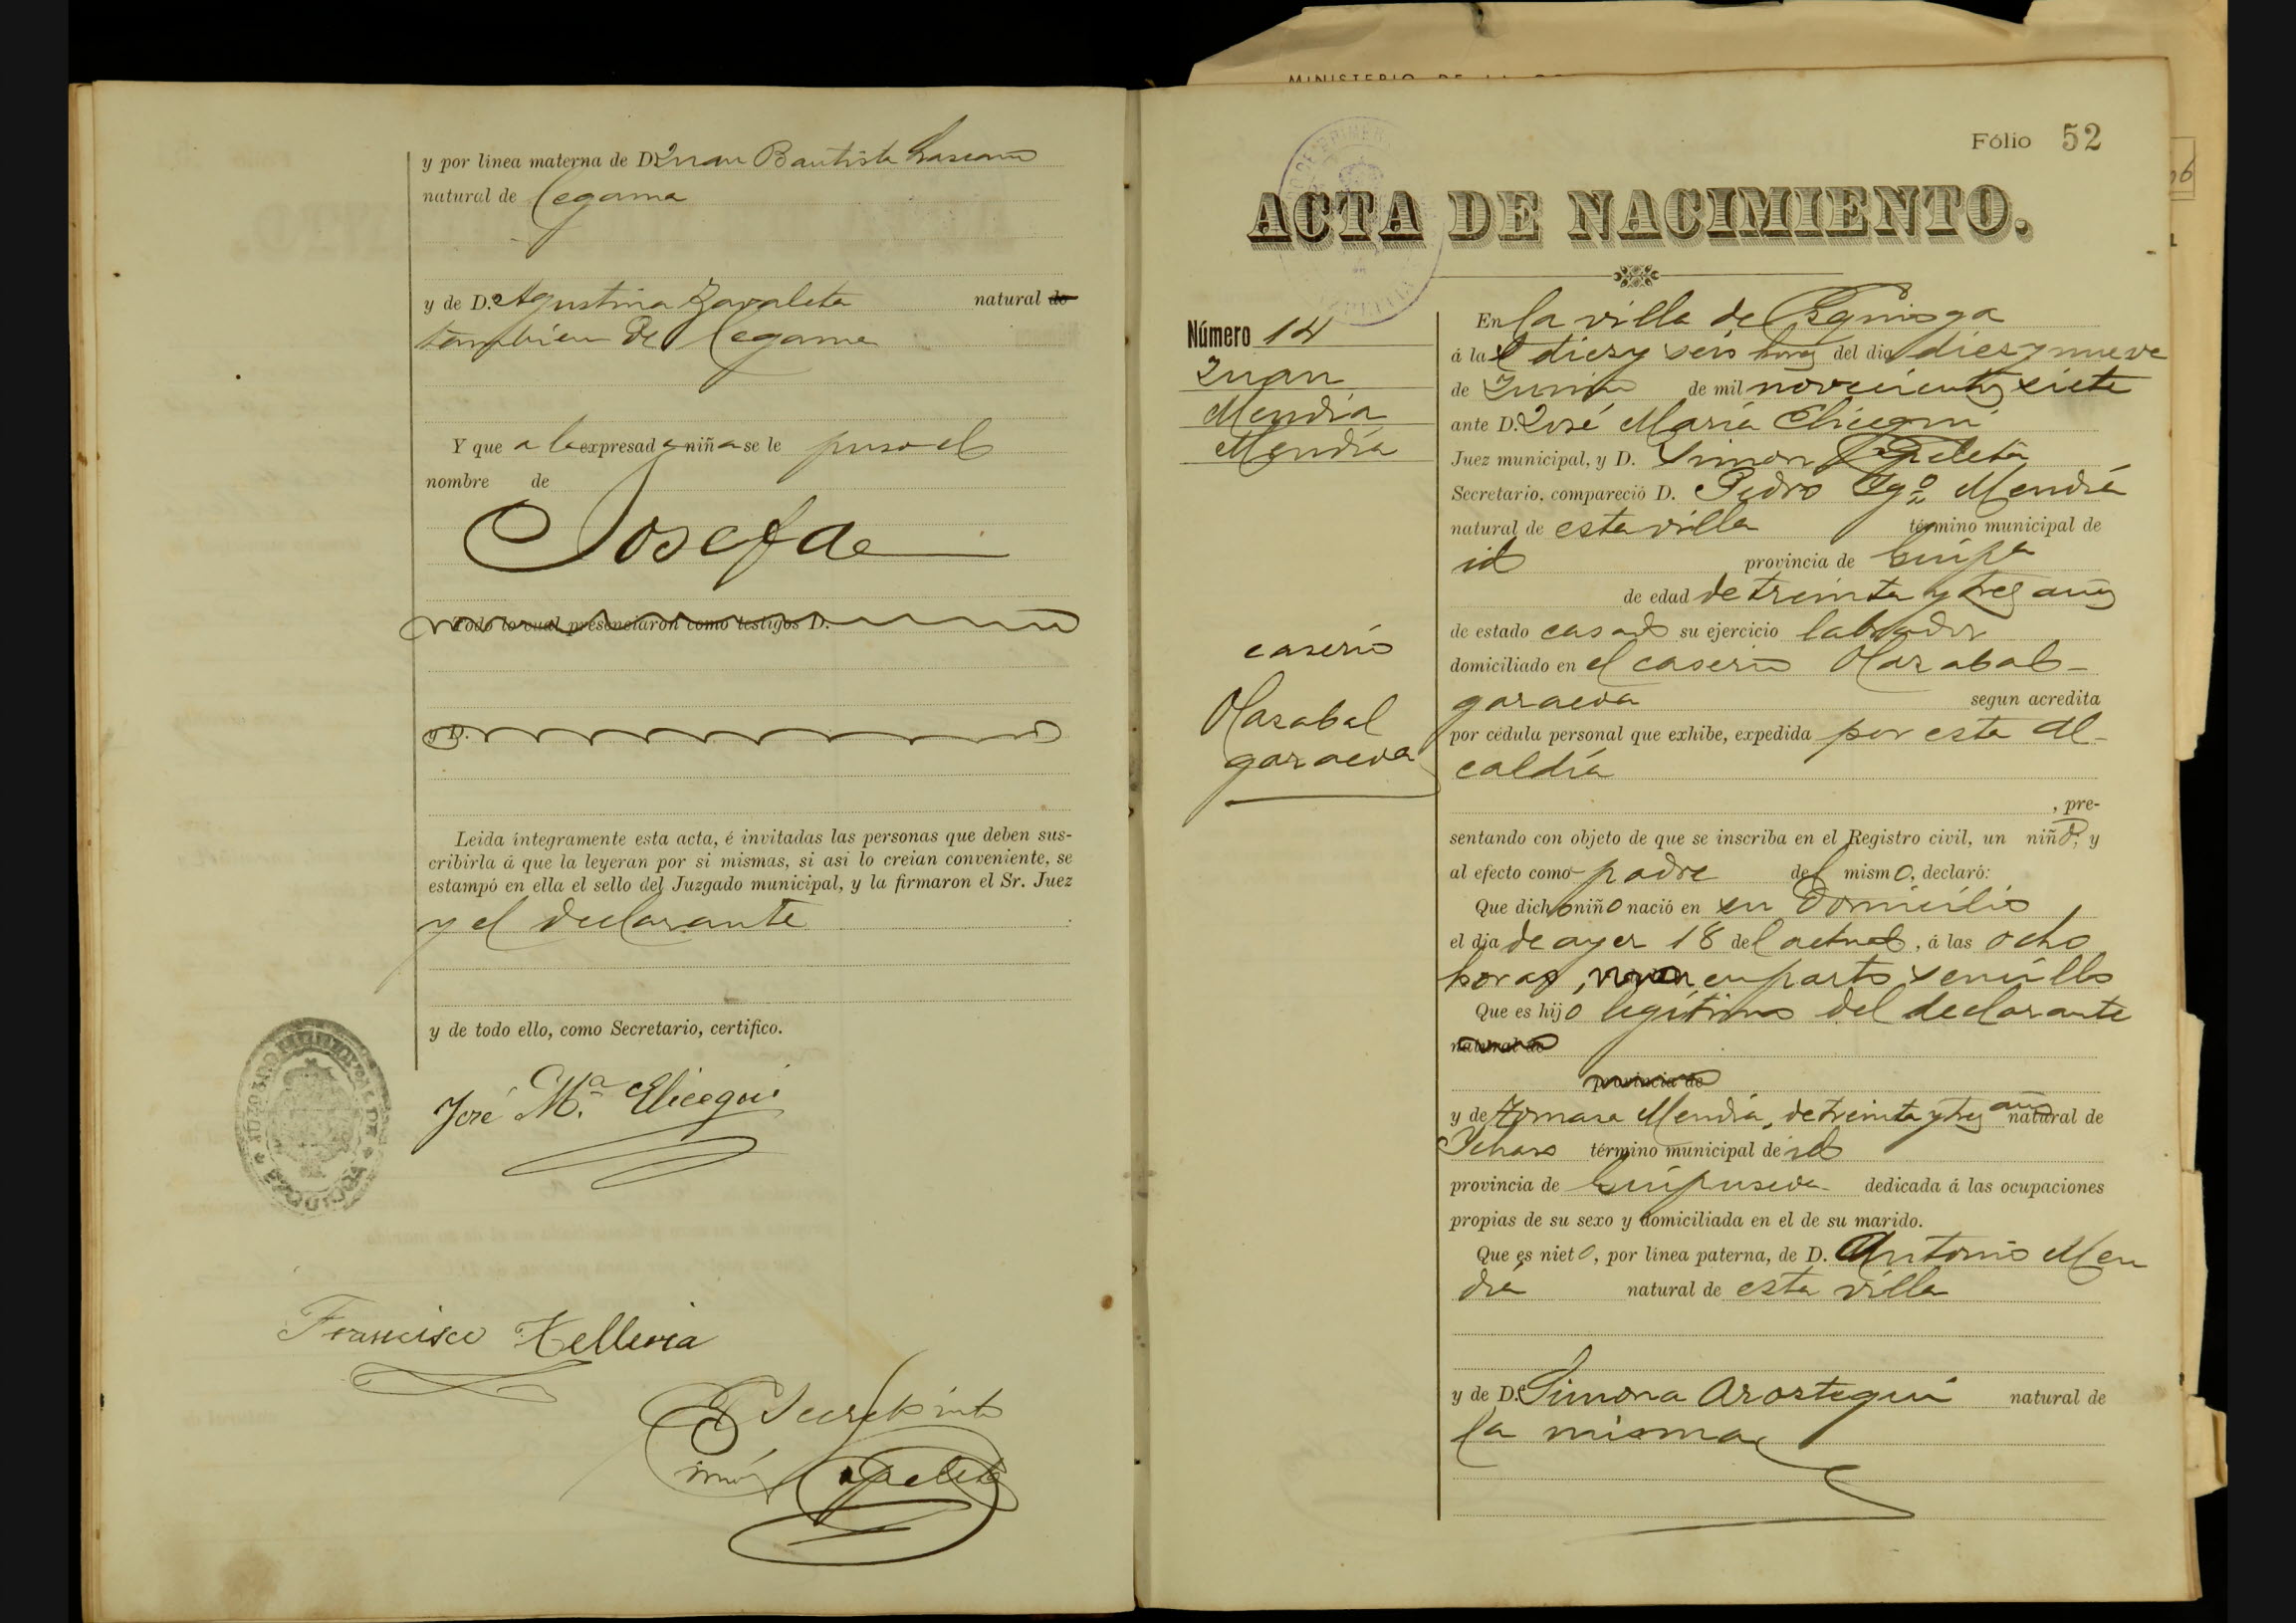 y por línea materna de D. Juan Bautista Lascano
natural de Cegama
y de D.ª Agustina Zavaleta natural de
tambien de Cegama
Y que a la expresada niña se le puso el
nombre de
Josefa
Todo lo cual presenciaron como testigos D.
y D.
Leida íntegramente esta acta, é invitadas las personas que deben sus-
cribirla á que la leyeran por si mismas, si asi lo creian conveniente, se
estampó en ella el sello del Juzgado municipal, y la firmaron el Sr. Juez
y el declarante
y de todo ello, como Secretario, certifico.
José M.ª Elicegui
JUZGADO MUNICIPAL DE
Francisco Telleria
El Secretario
Simón
MINISTERIO DE LA
Fólio 52
ACTA DE NACIMIENTO.
Número 14
Juan
Mendia
Mendía
caserio
Olazabal
garaecoa
En la villa de
á las diez y seis horas del dia diez y nueve
de Junio de mil novecientos siete
ante D. José María Elicegui
Juez municipal, y D. Simon
Secretario, compareció D. Pedro Ygº Mendía
natural de esta villa término municipal de
id provincia de Guipa
de edad de treinta y tres años
de estado casado su ejercicio labrador
domiciliado en el caserio Olazabal-
garaecoa segun acredita
por cédula personal que exhibe, expedida por esta Al-
caldía
, pre-
sentando con objeto de que se inscriba en el Registro civil, un niño, y
al efecto como padre del mismo, declaró:
Que dicho niño nació en su domicilio
el dia de ayer 18 del actual, á las ocho
horas, en parto sencillo
Que es hijo legítimo del declarante
natural de
provincia de
y de Tomasa Mendía, de treinta y tres años natural de
Ichaso término municipal de id
provincia de Guipuscoa dedicada á las ocupaciones
propias de su sexo y domiciliada en el de su marido.
Que es nieto, por línea paterna, de D. Antonio Men
día natural de esta villa
y de D.ª Simona Arostegui natural de
la misma